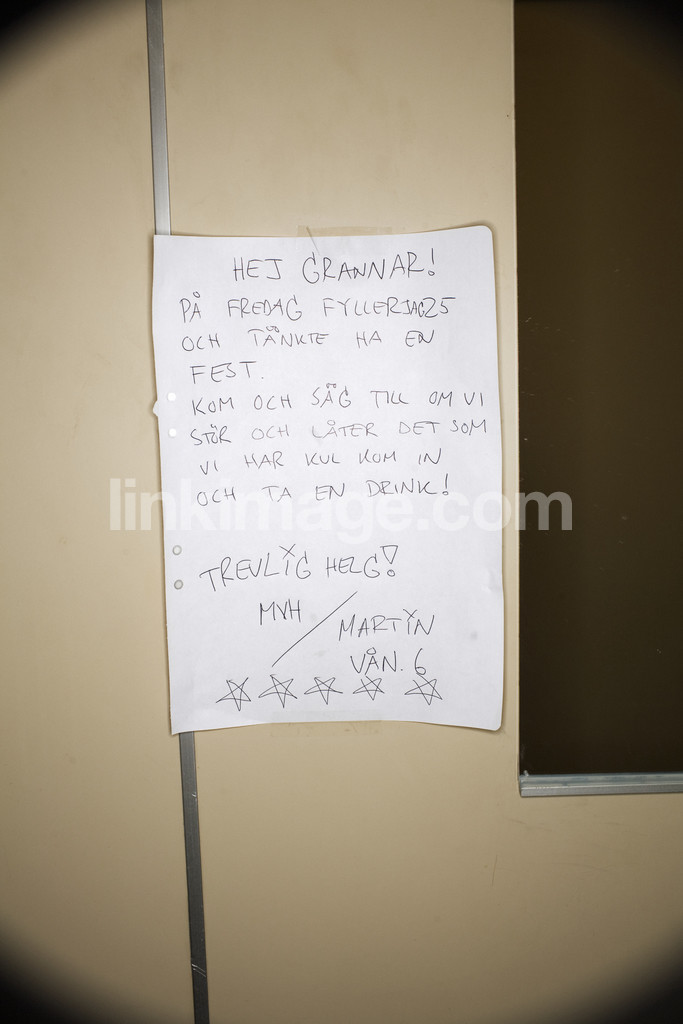 HEJ GRANNAR!
PÅ FREDAG FYLLER JAG 25
OCH TÄNKTE HA EN
FEST.
KOM OCH SÄG TILL OM VI
STÖR OCH LÅTER DET SOM
VI HAR KUL KOM IN
OCH TA EN DRINK!
linkimage.com
TREVLIG HELG!
MVH / MARTIN
VÅN. 6